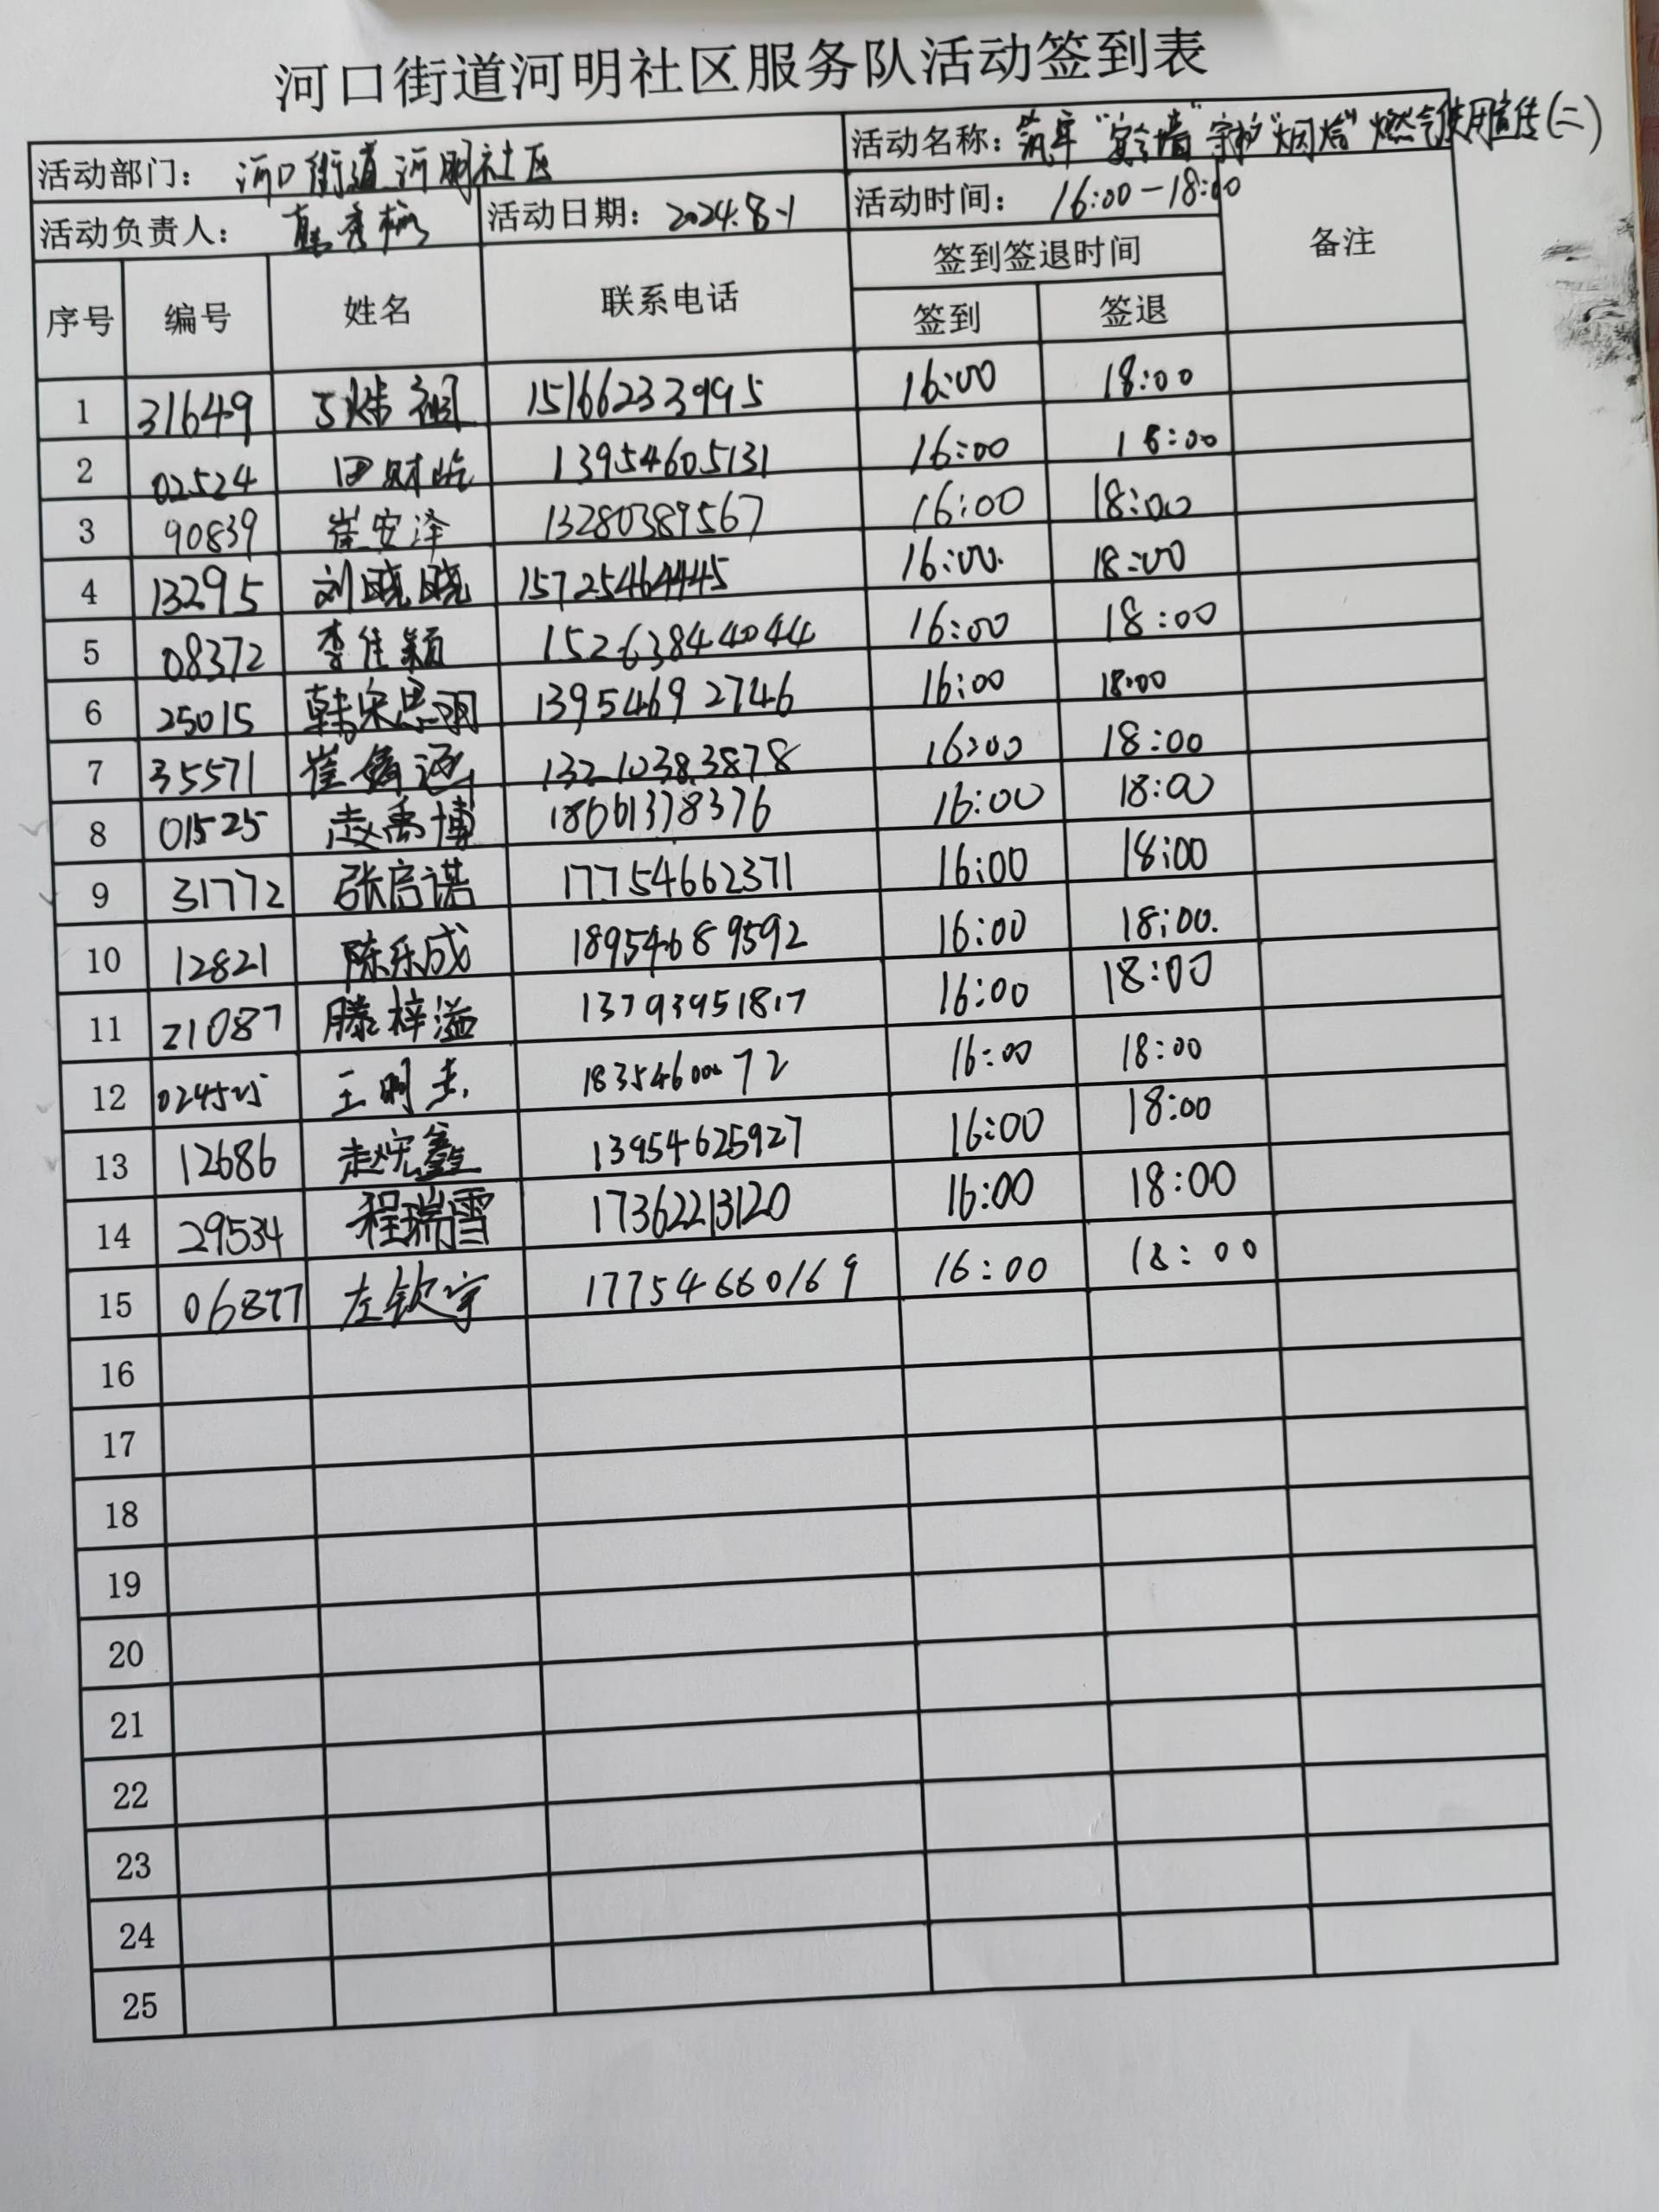 河口街道河明社区服务队活动签到表
活动部门： 河口街道河明社区 活动名称：筑牢“安全墙”守护“烟焰”燃气使用宣传(二)
活动负责人： 活动日期：2024.8.1 活动时间： 16:00-18:00
序号 编号 姓名 联系电话 签到签退时间 备注
签到 签退
1 31649 15166233995 16:00 18:00
2 02524 田财 13954605131 16:00 18:00
3 90839 崔安泽 13280389567 16:00 18:00
4 13295 刘晓晓 15725464445 16:00 18:00
5 08372 李佳颖 15263844044 16:00 18:00
6 25015 韩宋思明 13954692746 16:00 18:00
7 35571 崔鑫涵 13210383878 16:00 18:00
8 01525 赵禹博 18661378376 16:00 18:00
9 31772 张启诺 17754662371 16:00 18:00
10 12821 陈乐成 18954689592 16:00 18:00
11 21087 滕梓溢 13793951817 16:00 18:00
12 王明 18354600072 16:00 18:00
13 12686 赵 鑫 13954625927 16:00 18:00
14 29534 程瑞雪 17362213120 16:00 18:00
15 06877 左钦宇 17754660169 16:00 18:00
16
17
18
19
20
21
22
23
24
25